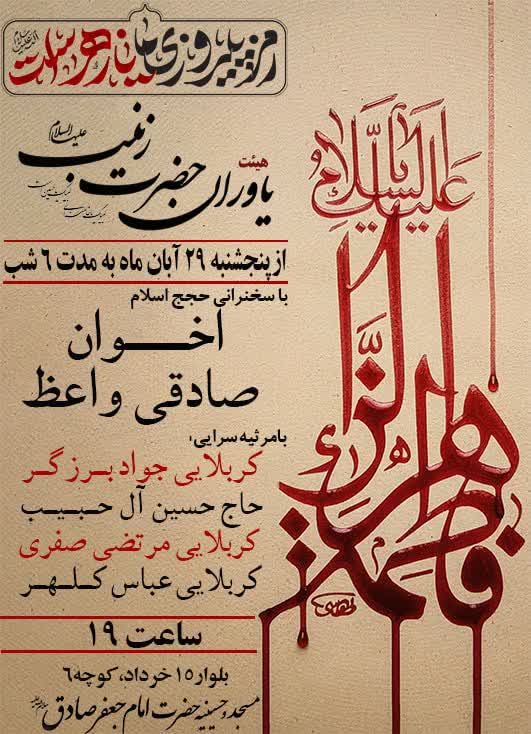 رمز پیروزی مایازهراست
هیئت
یاوران حضرت زینب
علیها السلام
از پنجشنبه ۲۹ آبان ماه به مدت ۶ شب
با سخنرانی حجج اسلام
اخـــوان
صادقی واعظ
بامرثیه سرایی:
کربلایی جواد بــرزگــر
حاج حسین آل حـبـیـب
کربلایی مرتضی صفری
کربلایی عباس کــلــهــر
ساعت ۱۹
بلوار ۱۵ خرداد، کوچه ۶
مسجد و حسینیه حضرت امام جعفر صادق
السلام علیک یا
فاطمة الزهرا